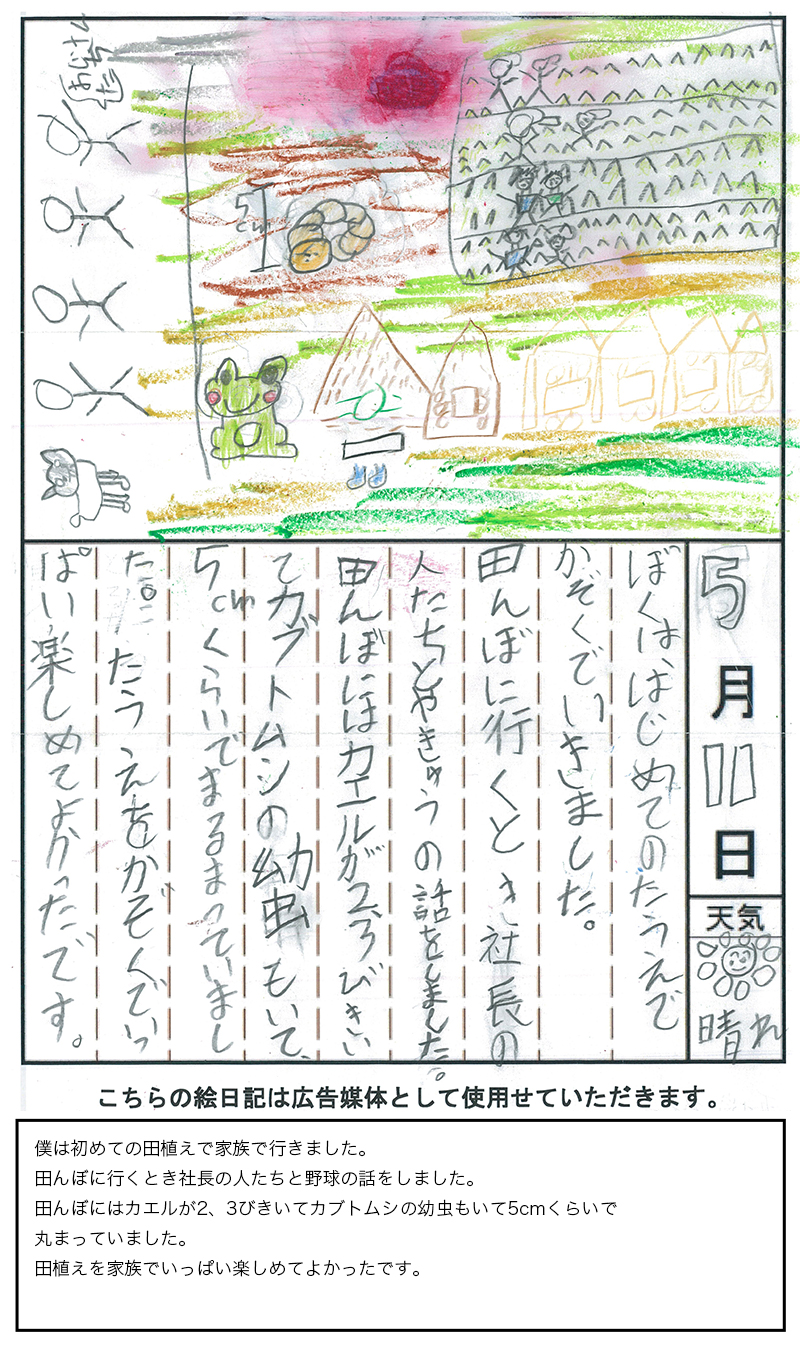 おじさんたち
5cm
5月11日
天気
晴れ
ぼくは、はじめてのたうえで
かぞくでいきました。
田んぼに行くとき社長の
人たちとやきゅうの話をしました。
田んぼにはカエルが2、3びきい
てカブトムシの幼虫もいて、
5cmくらいでまるまっていまし
た。たうえをかぞくでいっ
ぱい楽しめてよかったです。
こちらの絵日記は広告媒体として使用せていただきます。
僕は初めての田植えで家族で行きました。
田んぼに行くとき社長の人たちと野球の話をしました。
田んぼにはカエルが2、3びきいてカブトムシの幼虫もいて5cmくらいで
丸まっていました。
田植えを家族でいっぱい楽しめてよかったです。